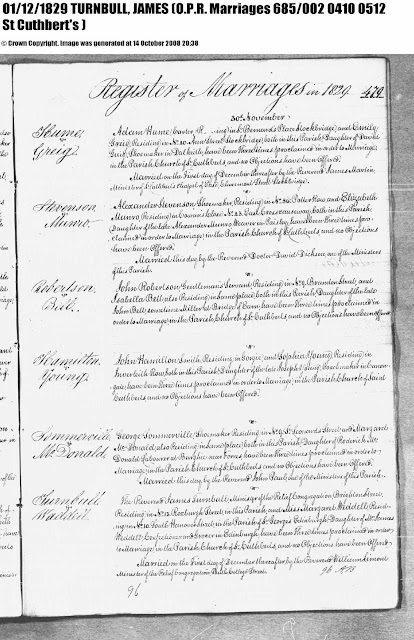 01/12/1829 TURNBULL, JAMES (O.P.R. Marriages 685/002 0410 0512
St Cuthbert's )
© Crown Copyright. Image was generated at 14 October 2008 20:38
Register of Marriages in 1829. 479
30th November
Hume,
Greig.
Adam Hume, Residing in St Bernard's Place Stockbridge, and Emily
Greig Residing in No 20 New Street Stockbridge, both in this Parish, Daughter of David
Greig, Shoemaker in Dalkeith, have been three times proclaimed in order to Marriage,
in the Parish Church of St Cuthberts, and no Objections have been Offered.
Married on the First day of December thereafter by the Reverend James Martin,
Minister of St Cuthberts Chapel of Ease, Stockbridge.
Stevenson,
Munro.
Alexander Stevenson, Shoemaker, Residing in No 36 Potter Row, and Elizabeth
Munro, Residing in Close No 23 Crosscauseway, both in this Parish,
Daughter of the late Alexander Munro, Weaver in Paisley, have been three times pro-
claimed in order to Marriage, in the Parish Church of St Cuthberts, and no Objections
have been Offered.
Married this day by the Reverend Doctor David Dickson, one of the Ministers
of this Parish.
Robertson,
Bell.
John Robertson, Gentlemans Servant, Residing in No 9 Brandon Street, and
Isabella Bell, also Residing in same place, both in this Parish, Daughter of the late
John Bell, sometime Miller at Bridge of Earn, have been three times proclaimed in
order to Marriage, in the Parish Church of St Cuthberts, and no Objections have been Offered
Hamilton,
Young.
John Hamilton, Smith, Residing in Gorgie, and Sophia Young, Residing in
Inverleith Row, both in this Parish, Daughter of the late Joseph Young,
have been three times proclaimed in order to Marriage, in the Parish Church of Saint
Cuthberts and no Objections have been Offered.
Sommerville,
McDonald.
George Sommerville, Shoemaker, Residing in No 9 St Leonards Street, and Margaret
McDonald, also Residing in same place, both in this Parish, Daughter of Roderick Mc
Donald, Labourer at near Forres, have been three times proclaimed in order to
Marriage, in the Parish Church of St Cuthberts, and no Objections have been Offered.
Married this day by the Reverend John Paul, one of the Ministers of this Parish.
Turnbull
Waddell.
The Reverend James Turnbull, Minister of the Relief Congregation Brighton Street,
Residing in No 12 Roxburgh Street, in this Parish, and Miss Margaret Weddell, Resid-
ing in No 10 South Hanover Street in the Parish of St Georges Edinburgh, Daughter of Mr James
Weddell, Confectioner and Grocer in Edinburgh, have been three times proclaimed in order
to Marriage, in the Parish Church of St Cuthberts, and no Objections have been Offered.
Married on the First day of December thereafter, by the Reverend William Limont
Minister of the Relief Congregation College Street.
96